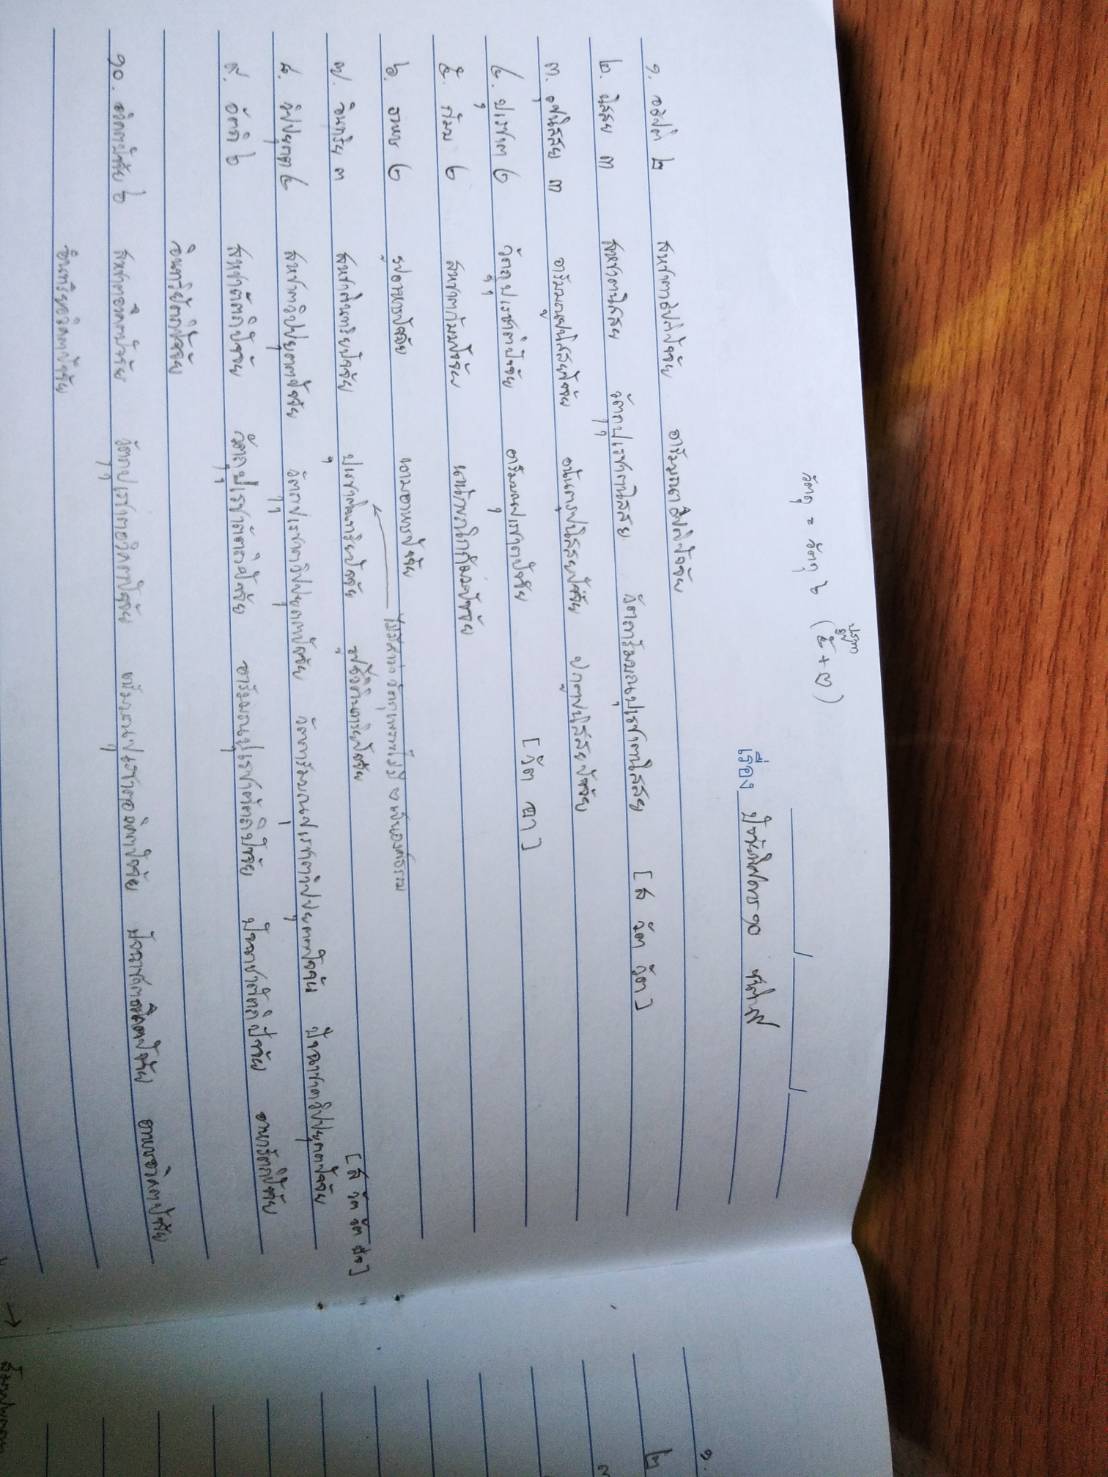 ปสาท
วัตถุ = วัตถุ ๖ (๕+๑)
เรื่อง ปัจจัยพิสดาร ๑๐
๑. อธิปติ ๒ สหชาตาธิปติปัจจัย อารัมมณาธิปติปัจจัย
๒. นิสสย ๓ สหชาตนิสสย วัตถุปุเรชาตนิสสย วัตถารัมมณปุเรชาตนิสสย [ส วัต วัต]
๓. อุปนิสสย ๓ อารัมมณูปนิสสยปัจจัย อนันตรูปนิสสยปัจจัย ปกตูปนิสสยปัจจัย
๔. ปุเรชาต ๒ วัตถุปุเรชาตปัจจัย อารัมมณปุเรชาตปัจจัย [วัต อา]
๕. กัมม ๒ สหชาตกัมมปัจจัย นานักขณิกกัมมปัจจัย
๖. อาหาร ๒ รูปอาหารปัจจัย นามอาหารปัจจัย
ไม่มีคำว่า วัตถุเพราะไม่มี ๑ เป็นองค์ธรรม
๗. อินทริย ๓ สหชาตินทริยปัจจัย ปุเรชาตินทริยปัจจัย รูปชีวิตินทริยปัจจัย
[ส วัต วัต ปัจ]
๘. วิปปยุตต ๔ สหชาตวิปปยุตตปัจจัย วัตถุปุเรชาตวิปปยุตตปัจจัย วัตถารัมมณปุเรชาตวิปปยุตตปัจจัย ปัจฉาชาตวิปปยุตตปัจจัย
๙. อัตถิ ๖ สหชาตัตถิปัจจัย วัตถุปุเรชาตัตถิปัจจัย อารัมมณปุเรชาตัตถิปัจจัย ปัจฉาชาตัตถิปัจจัย อาหารัตถิปัจจัย
อินทริยัตถิปัจจัย
๑๐. อวิคตปัจจัย ๖ สหชาตอวิคตปัจจัย วัตถุปุเรชาตอวิคตปัจจัย อารัมมณปุเรชาตอวิคตปัจจัย ปัจฉาชาตอวิคตปัจจัย อาหารอวิคตปัจจัย
อินทริยอวิคตปัจจัย
๑.
๒